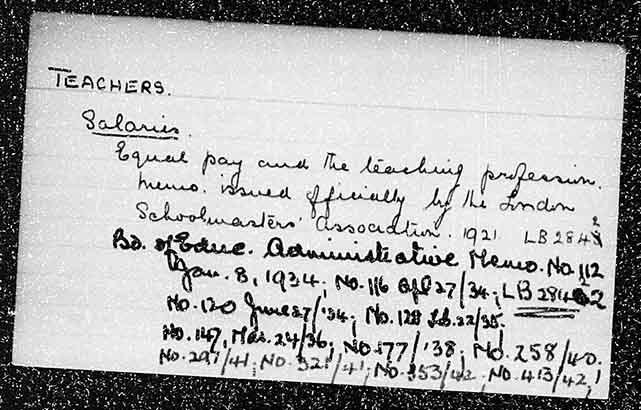 TEACHERS.
Salaries.
Equal pay and the teaching profession.
Memo. issued officially by the London
Schoolmasters' Association. 1921 LB 2842
Bd. of Educ. Administrative Memo. No. 112
Jan. 8, 1934; No. 116 Apl 27/34; LB 2842
No. 120 June 27/'34; No. 128 Feb. 22/35.
No. 147, Mar. 24/36; No 177/'38; No. 258/40.
No. 297/41; No. 321/41; No. 353/42; No. 413/42;